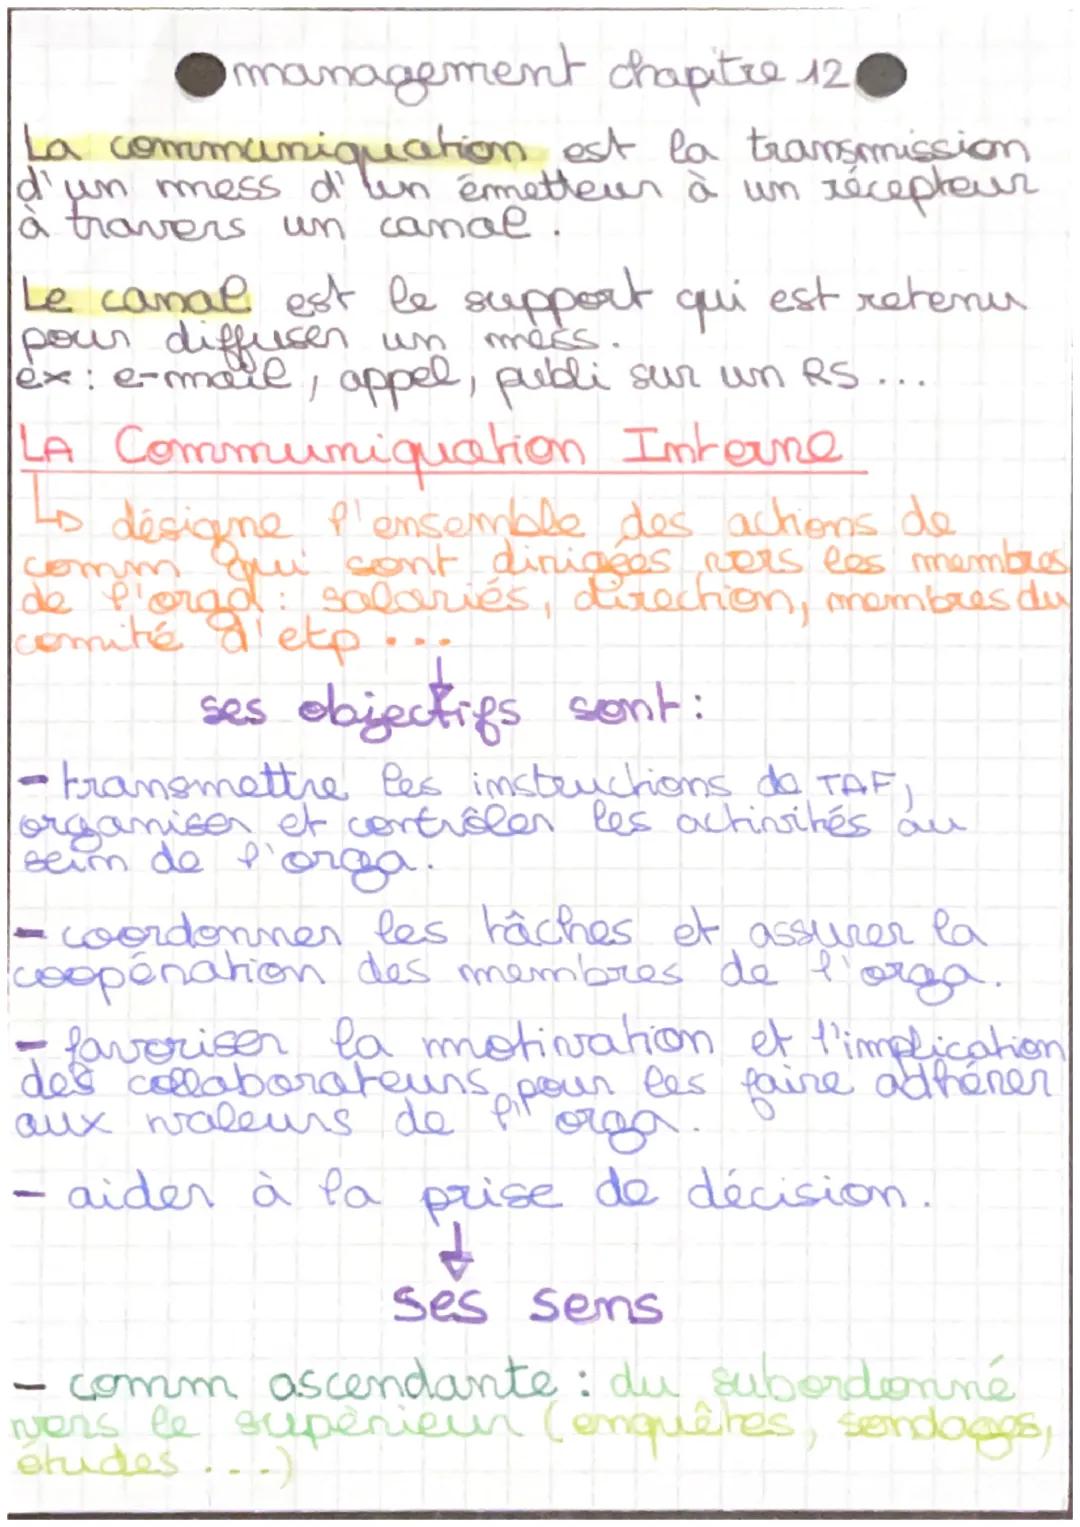 management chapitre 12
La communiquation est la transmission
d'un mess d'un émetteur à un récepteur
à travers un canal.
Le canal est le support qui est retenu
pour diffuser un mess.
ex : e-mail, appel, publi sur un RS ...
LA Communiquation Interne
↳ désigne l'ensemble des actions de
comm qui sont dirigées vers les membres
de l'orga : salariés, direction, membres du
comité d'etp ...
ses objectifs sont :
- transmettre les instructions de TAF,
organiser et contrôler les activités au
sein de l'orga.
- coordonner les tâches et assurer la
coopération des membres de l'orga.
- favoriser la motivation et l'implication
des collaborateurs pour les faire adhérer
aux valeurs de l'orga.
- aider à la prise de décision.
↓
ses sens
- comm ascendante : du subordonné
vers le supérieur (enquêtes, sondages,
études ...)